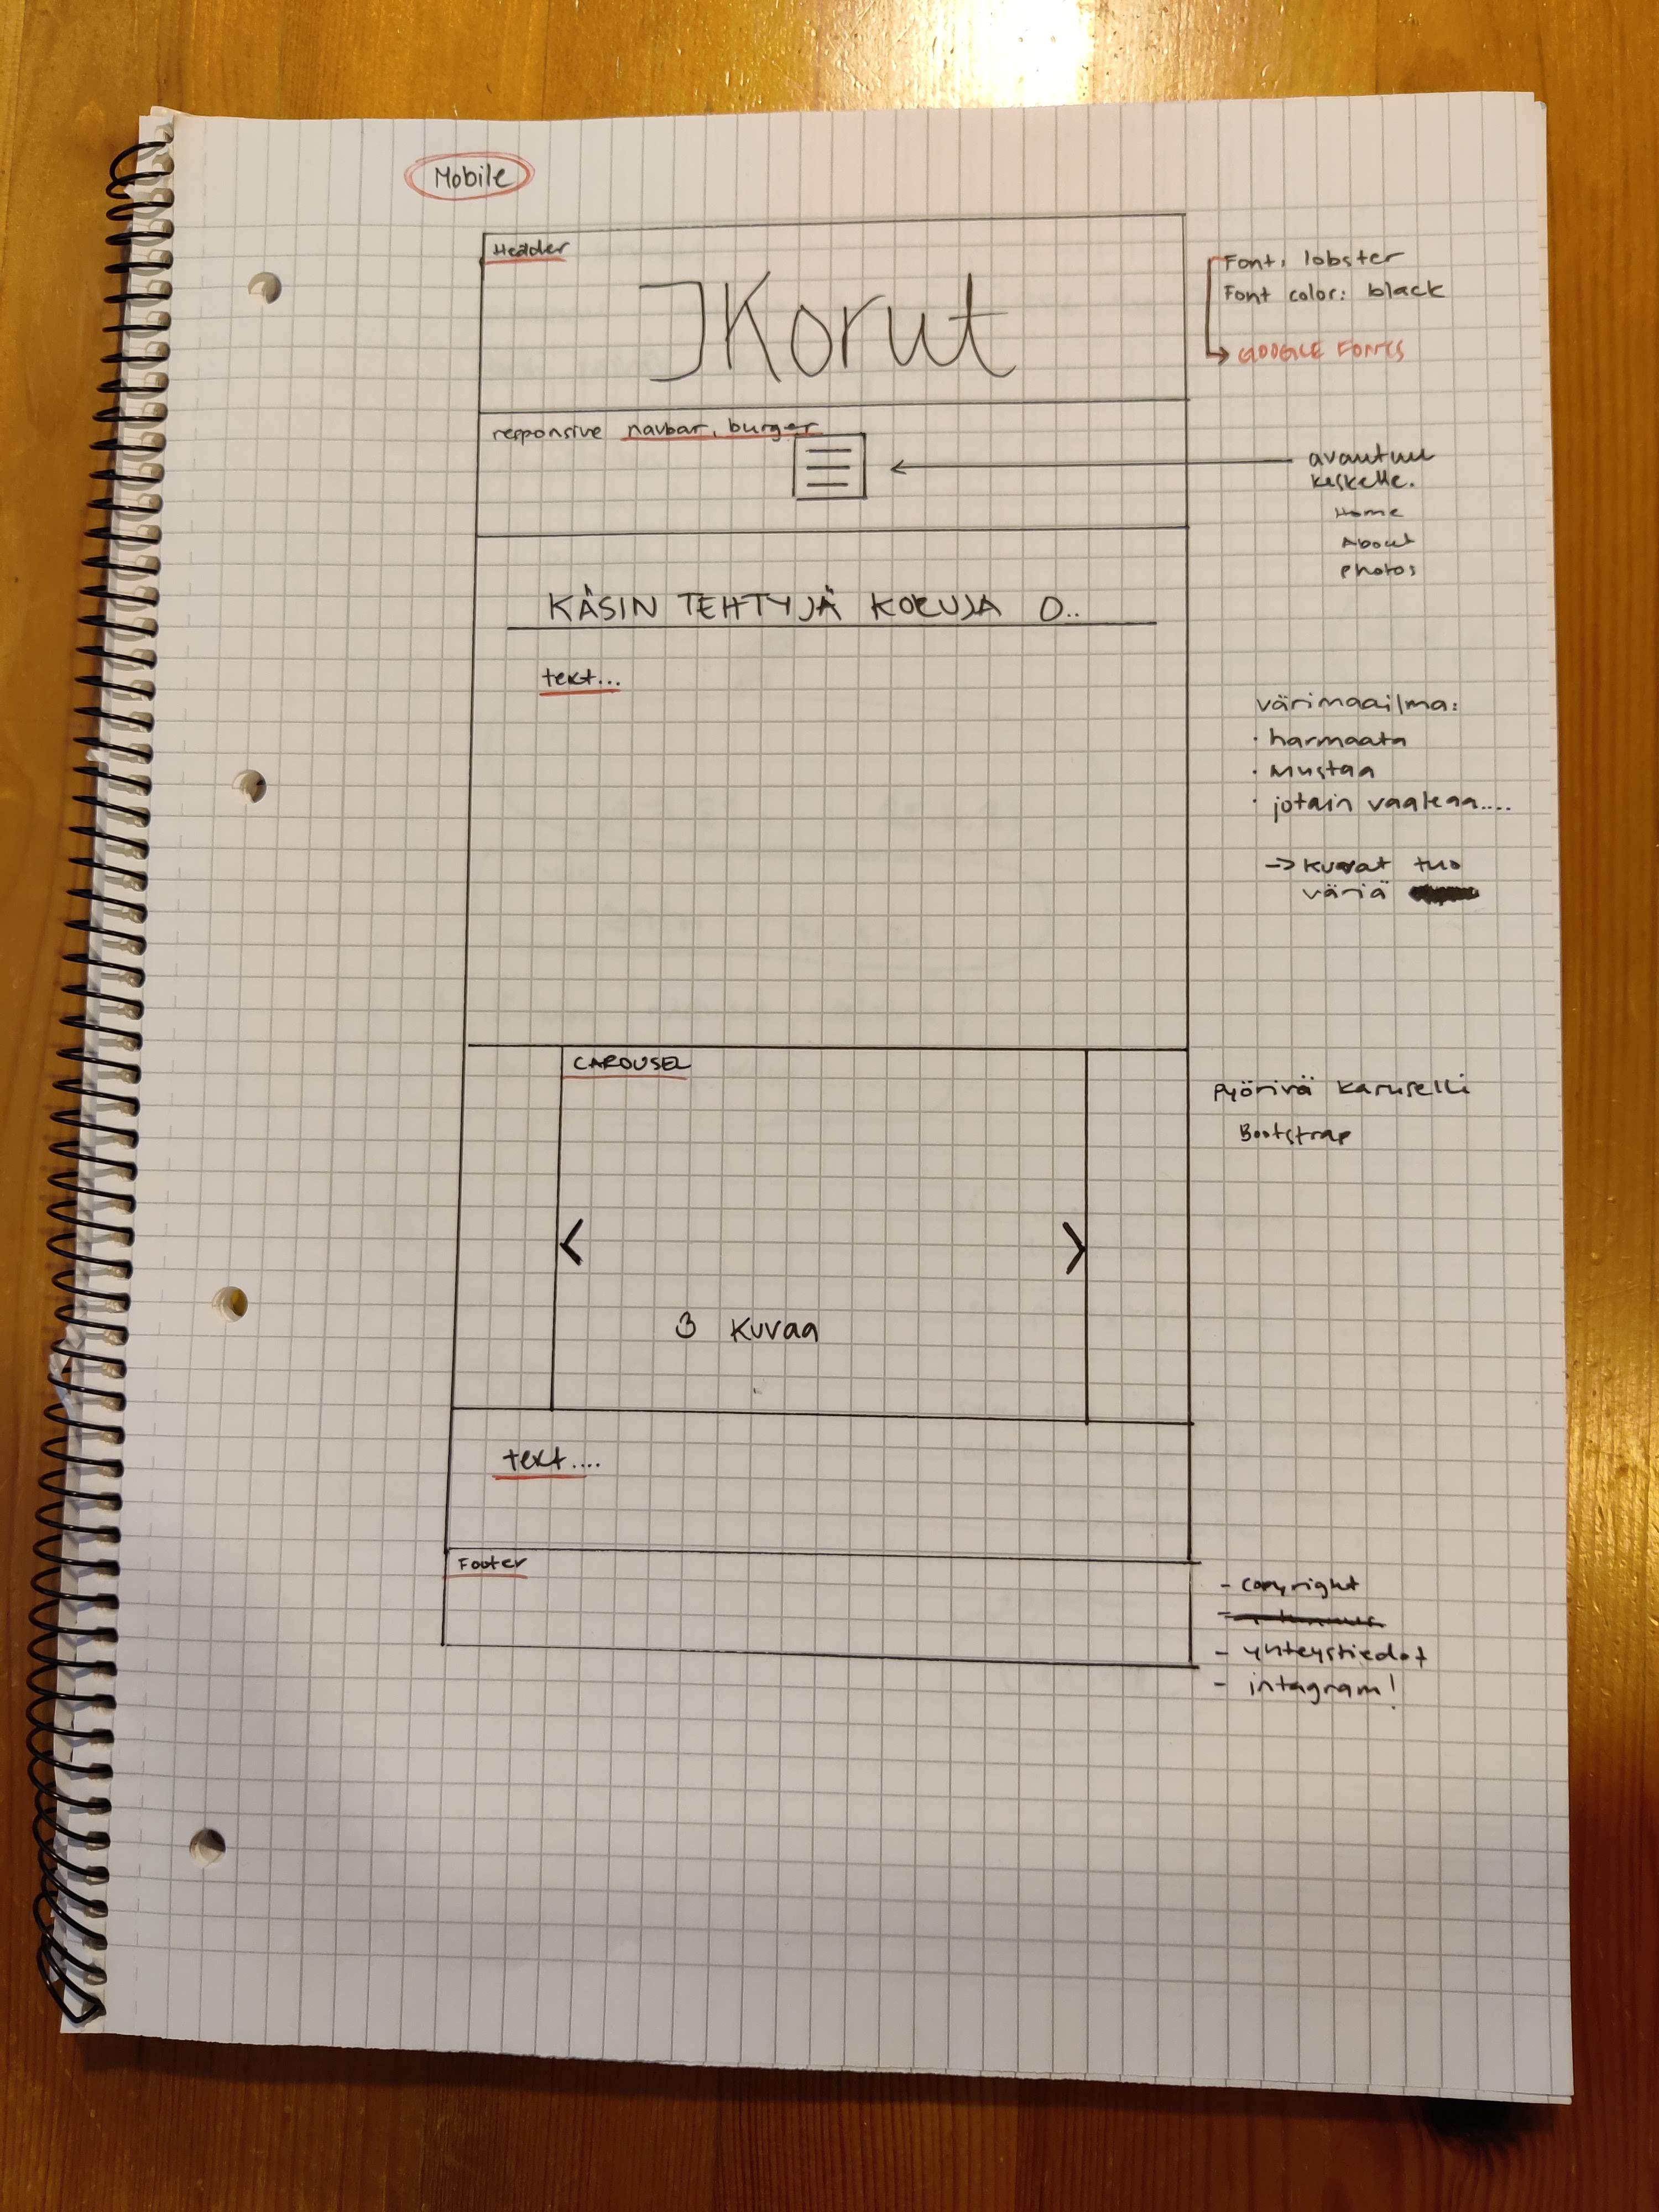 Mobile
Header
JKorut
Font: lobster
Font color: black
GOOGLE FONTS
responsive navbar, burger
avautuu
keskelle.
Home
About
Photos
KÄSIN TEHTYJÄ KORUJA O..
text...
värimaailma:
· harmaata
· mustaa
· jotain vaaleaa....
-> kuvat tuo
väriä
CAROUSEL
pyörivä karuselli
Bootstrap
< >
3 kuvaa
text....
Footer
- copyright
- yhteystiedot
- intagram!